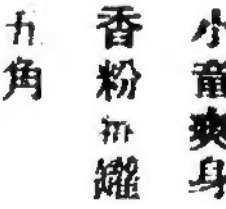 小童爽身
香粉每罐
角